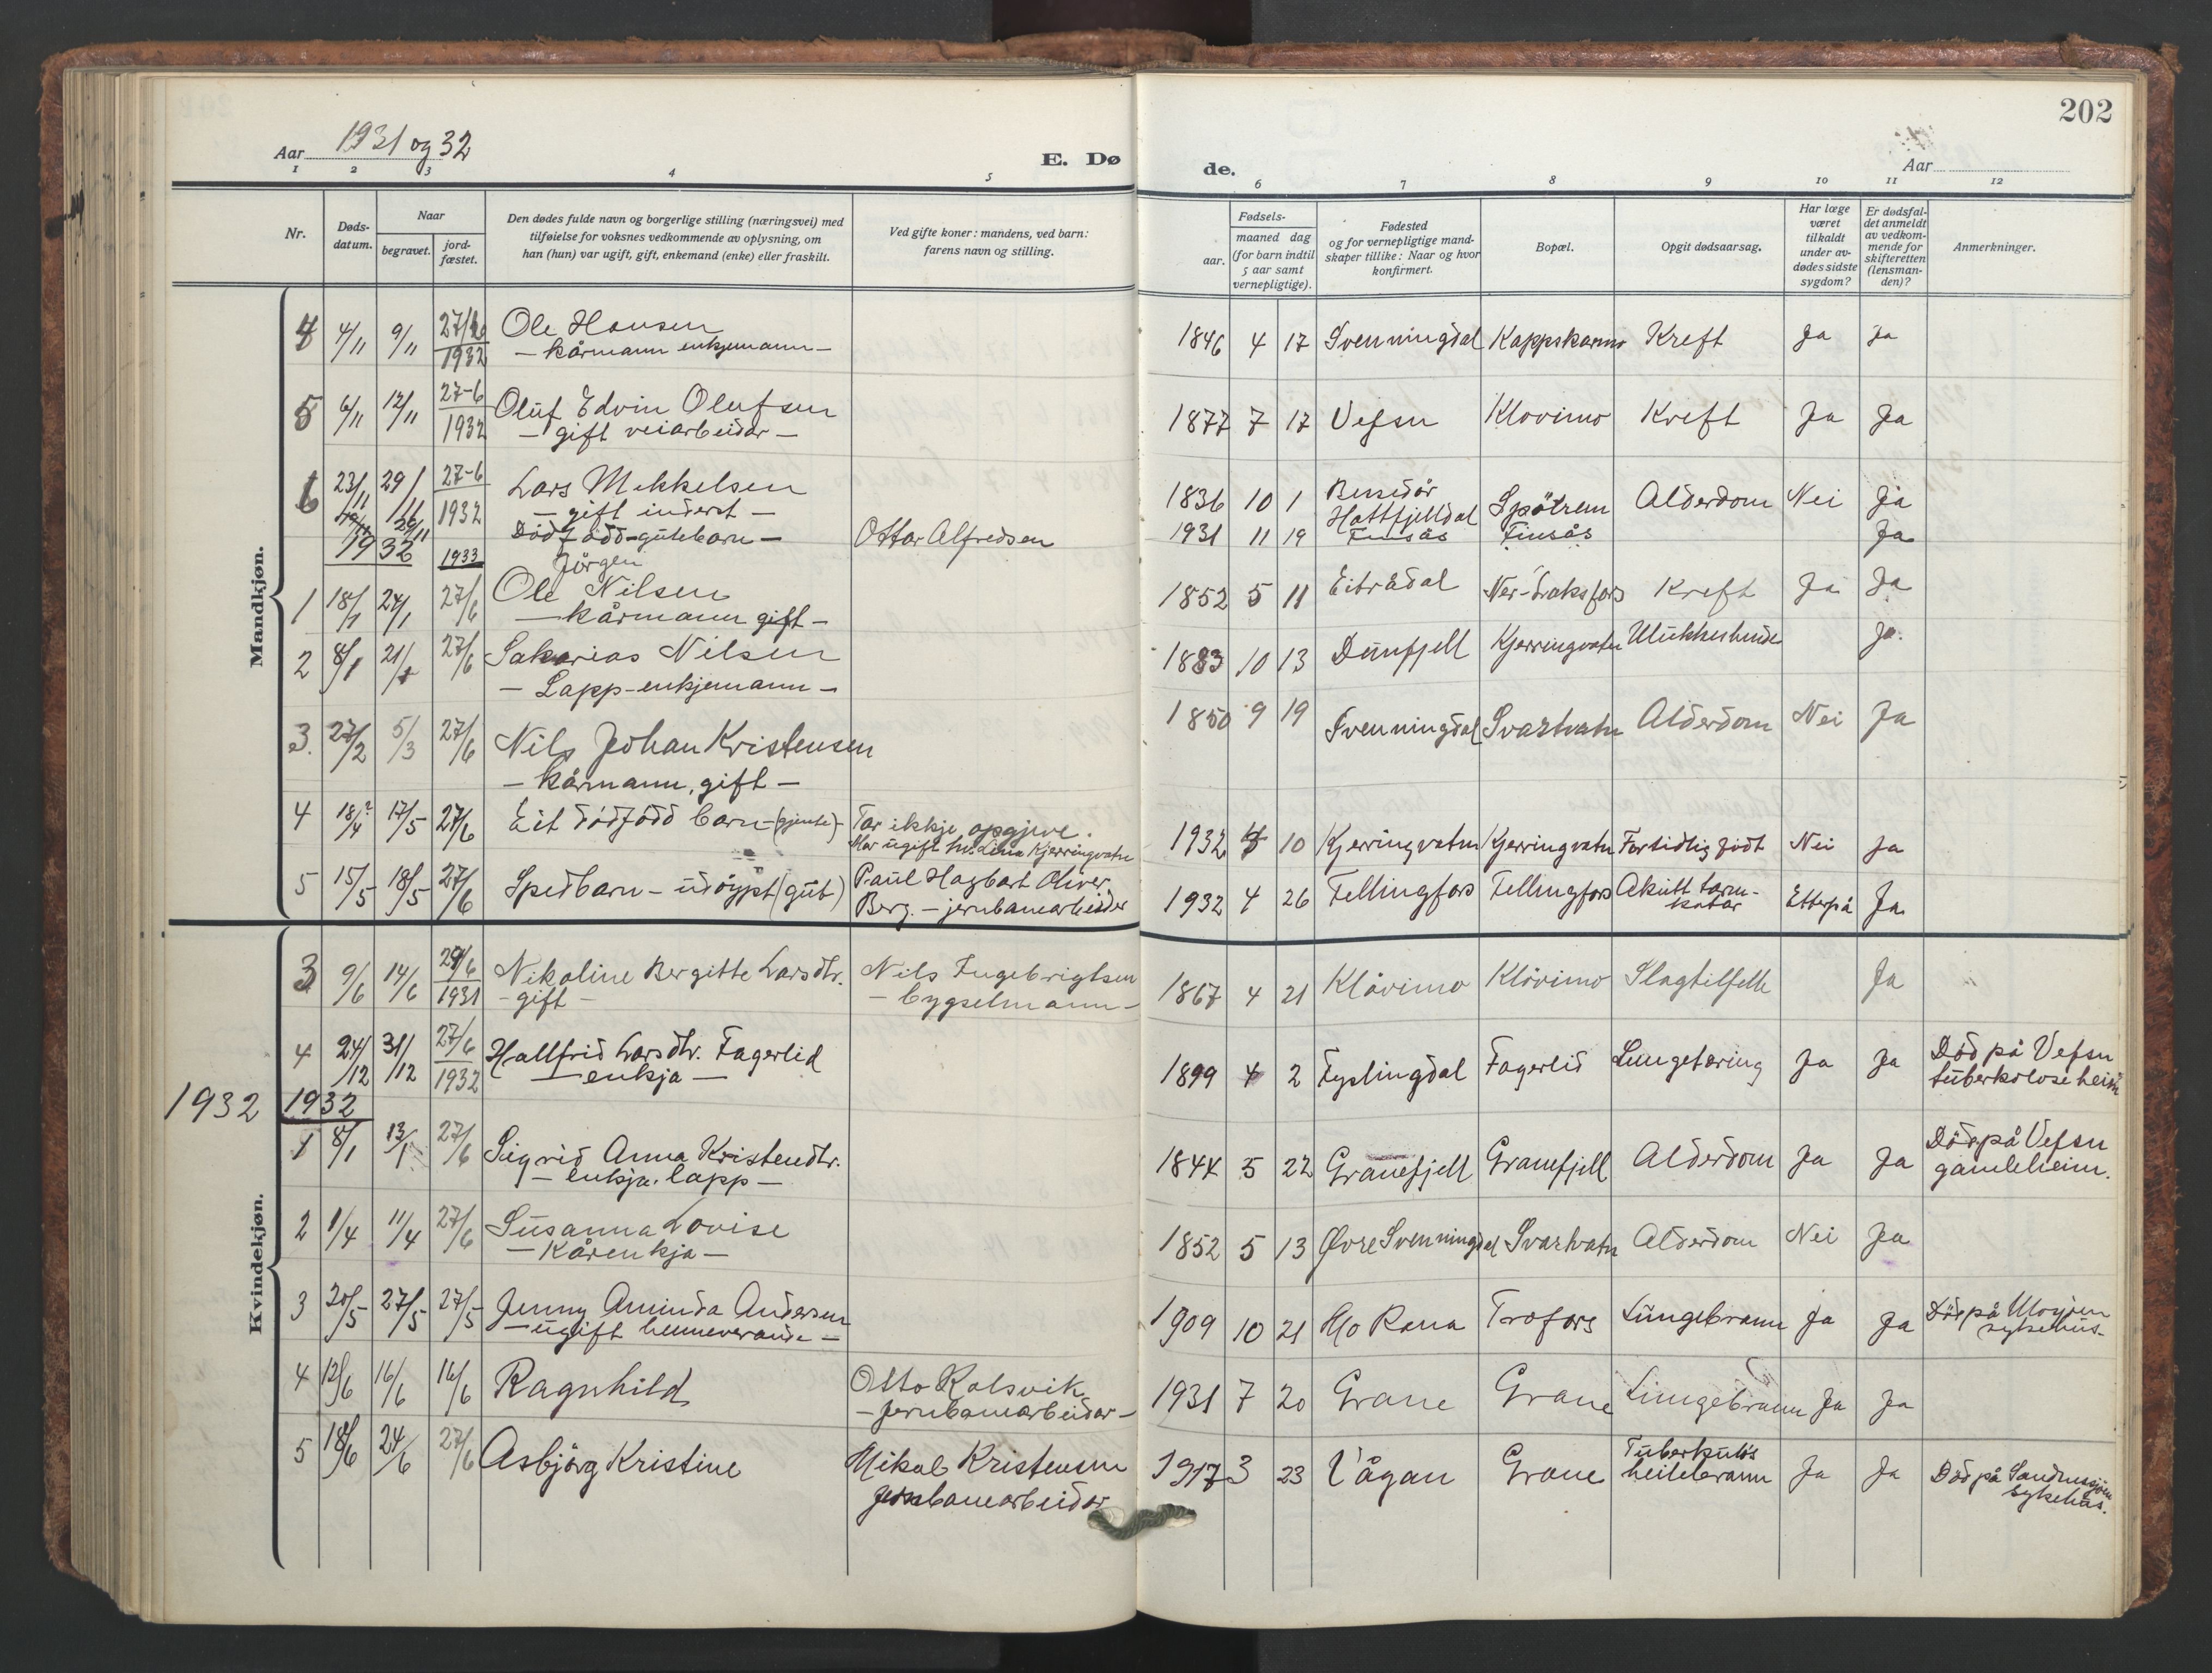 202
Aar 1931 og 32
E. Dø
de.
Aar
1 2 3 4 5 6 7 8 9 10 11 12
Nr.
Døds-
datum.
Naar
begravet.
jord-
fæstet.
Den dødes fulde navn og borgerlige stilling (næringsvei) med
tilføielse for voksnes vedkommende av oplysning, om
han (hun) var ugift, gift, enkemand (enke) eller fraskilt.
Ved gifte koner: mandens, ved barn:
farens navn og stilling.
Fødsels-
aar.
maaned dag
(for barn indtil
5 aar samt
vernepligtige).
Fødested
og for vernepligtige mand-
skaper tillike: Naar og hvor
konfirmert.
Bopæl.
Opgit dødsaarsag.
Har læge
været
tilkaldt
under av-
dødes sidste
sygdom?
Er dødsfal-
det anmeldt
av vedkom-
mende for
skifteretten
(lensman-
den)?
Anmerkninger.
Mandkjøn.
4 4/11 9/11 27/6 1932 Ole Hansen 1846 4 17 Svenningdal Kappskarmo Kreft Ja Ja
– kårmann enkjemann –
5 6/11 12/11 27-6 1932 Oluf Edvin Olufsen 1877 7 17 Vefsn Klovimo Kreft Ja Ja
– gift veiarbeidar –
6 23/11 29/11 27-6 1932 Lars Mikkelsen 1836 10 1 Hattfjelldal Alderdom Nei Ja
– gift inderst –
29/11 1933 Dödfödd gutebarn – Ottar Alfredsen 1931 11 19 Finsås Finsås Ja
1932
Jörgen
1 18/1 24/1 27/6 Ole Nilsen 1852 5 11 Eitrådal Ner-Laksfors Kreft Ja Ja
– kårmann gift –
2 8/1 21/1 27/6 Sakarias Nilsen 1883 10 13 Dunfjell Kjerringvatn Ulukkeshende Ja
– Lapp – enkjemann –
3. 27/2 5/3 27/6 Nils Johan Kristensen 1850 9 19 Svenningdal Svartvatn Alderdom Nei Ja
– kårmann, gift –
4 18/4? 17/5 27/6 Eit dödfödd barn – (gjente) – Far ikkje opgjeve. 1932 4 10 Kjerringvatn Kjerringvatn Fortidlig födt Nei Ja
Mor ugift hv. Lina Kjerringvatn
5 15/5 18/5 27/6 Spedbarn – udöypt (gut) Paul Hagbart Oliver 1932 4 26 Fellingfors Fellingfors Akutt tarm-
katar Etterpå Ja
Berg. – jernbanearbeider
Kvindekjøn.
3 9/6 14/6 29/6 1931 Nikoline Bergitte Larsdtr. Nils Ingebrigtsen 1867 4 21 Klåvimo Klövimo Slagtilfelle Ja
– gift – – bygselmann –
4 24/12 31/12 27/6 1932 Hallfrid Larsdtr. Fagerlid 1899 4 2 Fyplingdal Fagerlid Lungetæring Ja Ja Död på Vefsn
– enkja – tuberkoloseheim
1932 1932
1 8/1 13/1 27/6 Sigrid Anna Kristendtr. 1844 5 22 Granefjell Granefjell Alderdom Ja Ja Död på Vefsn
– enkja. lapp – gamleheim.
2 1/4 11/4 27/6 Susanna Lovise 1852 5 13 Øvre Svenningdal Svartvatn Alderdom Nei Ja
– Kårenkja –
3 20/5 27/5 27/5 Jenny Aminda Andersen 1909 10 21 Mo Rana Trofors Lungebrann Ja Ja Död på Mosjöen
– ugift heimeverande – sykehus –
4 12/6 16/6 16/6 Ragnhild Otto Kolsvik 1931 7 20 Grane Grane Lungebrann Ja Ja
– Jernbanearbeidar –
5 18/6 24/6 27/6 Asbjörg Kristine Mikal Kristensen 1917 3 23 Vågan Grane Tuberkulös
heilebrann Ja Ja Död på Sandnessjöen
Jernbanearbeidar sykehus.